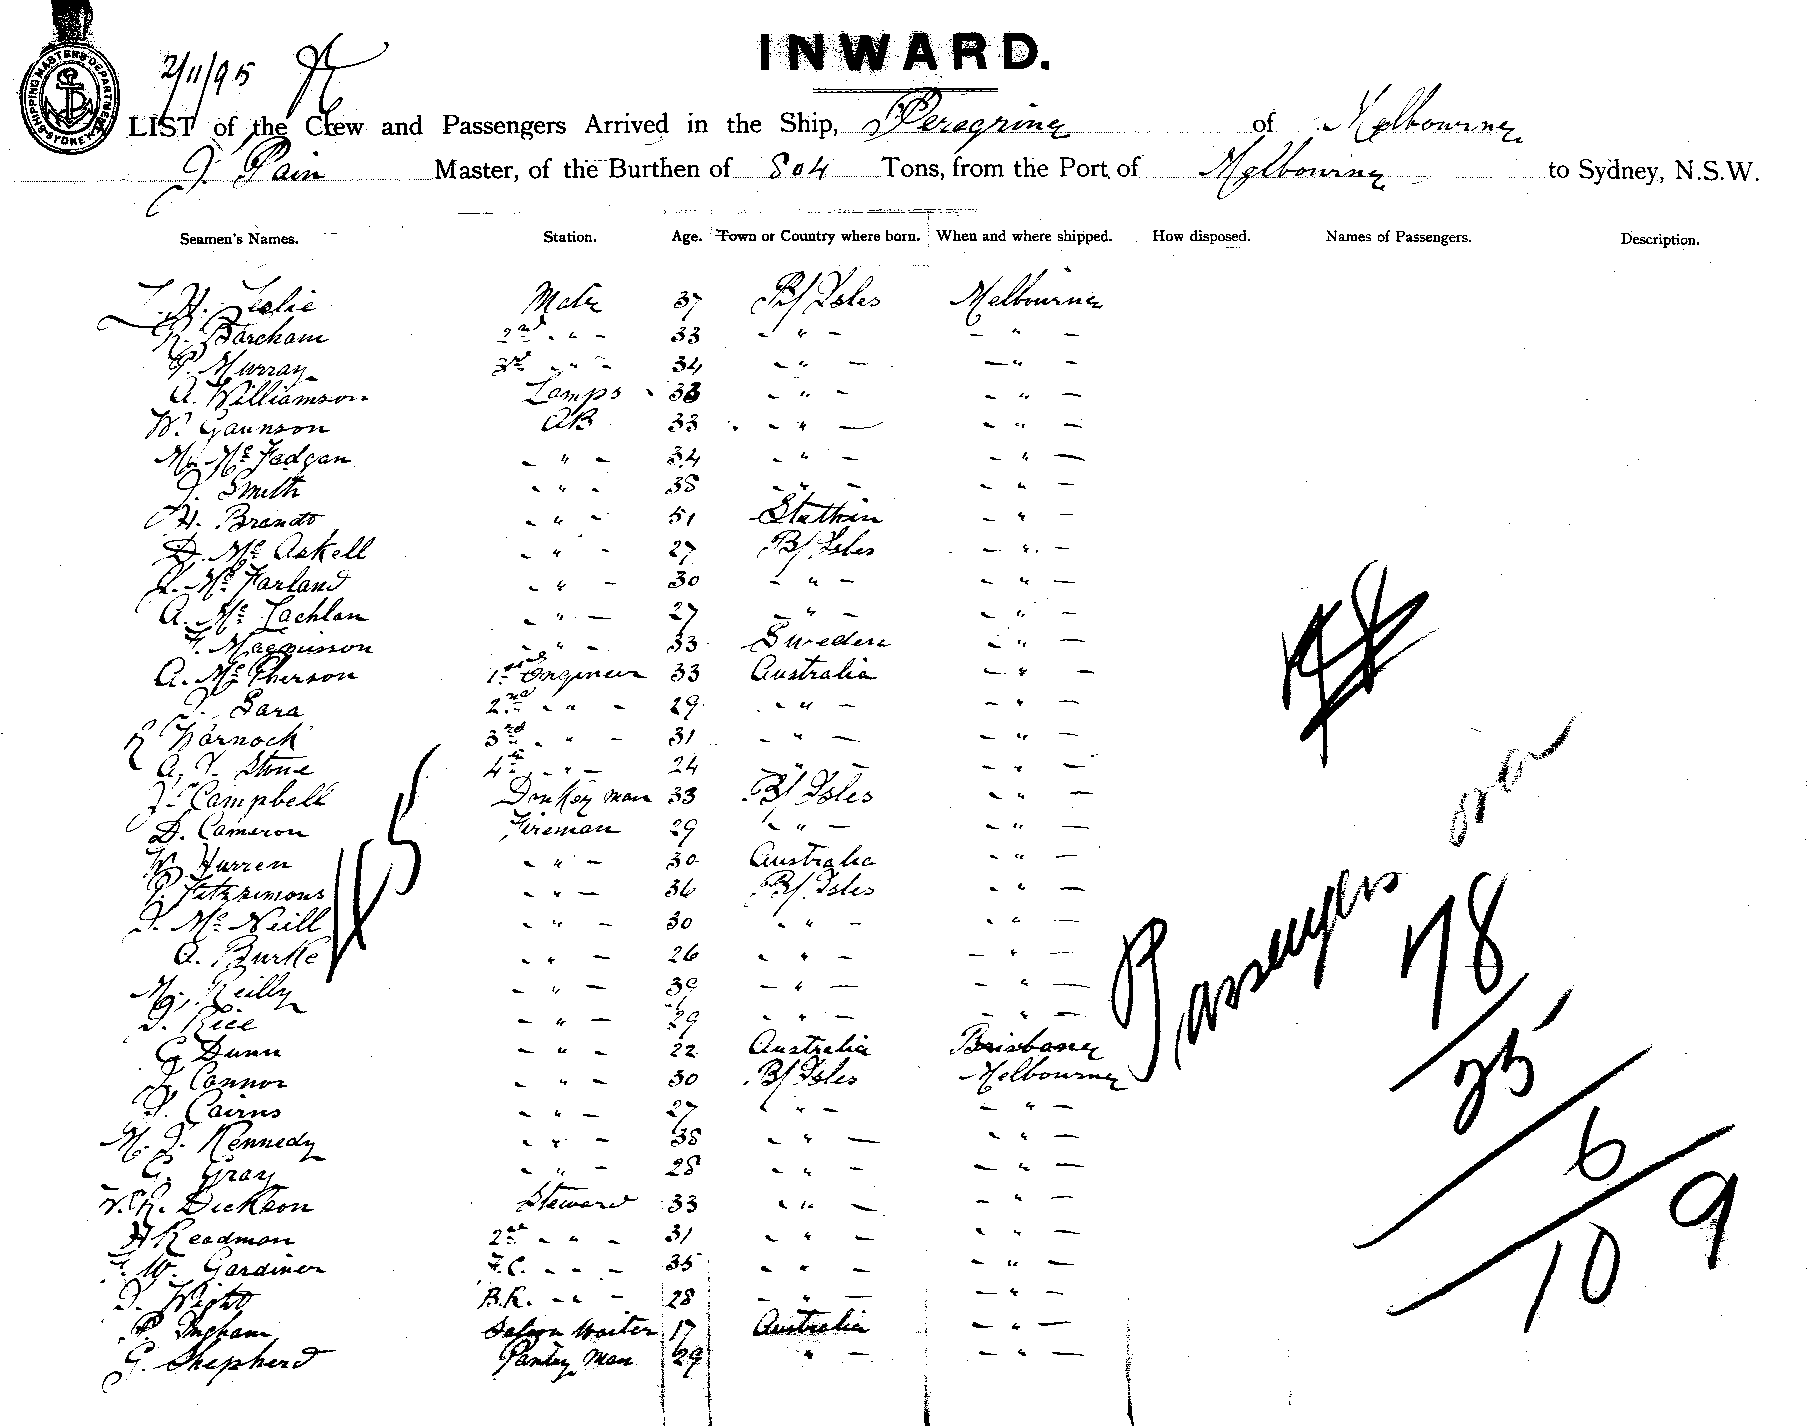 INWARD.
SHIPPING MASTER'S DEPARTMENT
2/11/95
LIST of the Crew and Passengers Arrived in the Ship, Peregrine of Melbourne
J. Pain Master, of the Burthen of 804 Tons, from the Port of Melbourne to Sydney, N.S.W.
Seamen's Names. Station. Age. Town or Country where born. When and where shipped. How disposed. Names of Passengers. Description.
H. Leslie Mate 37 B/ Isles Melbourne
R. Barcham 2nd " 33 " "
P. Murray 3rd " 34 " "
A. Williamson Lamps 33 " "
W. Gaunson AB 33 " "
M. Mc Fadgan " 34 " "
J. Smith " 38 " "
H. Brandt " 51 Stettin "
D. Mc Askell " 27 B/ Isles "
J. Mc Farland " 30 " "
A. Mc Lachlan " 27 " "
F. Magnusson " 33 Sweden "
A. Mc Pherson 1st Engineer 33 Australia "
J. Sara 2nd " 29 " "
R Warnock 3rd " 31 " "
A. T. Stone 4th " 24 " "
Js Campbell Donkey man 33 B/ Isles "
D. Cameron Fireman 29 " "
W. Hurren " 30 Australia "
P. Fitzsimons " 36 B/ Isles "
J. Mc Neill " 30 " "
A. Burke " 26 " "
M. Reilly " 39 " "
J. Rice " 29 " "
G. Dunn " 22 Australia Brisbane
J. Connor " 30 B/ Isles Melbourne
P. Cairns " 27 " "
M. J. Kennedy " 38 " "
G. Gray " 28 " "
W. R. Dickson Steward 33 " "
H Readman 2nd " 31 " "
F. W. Gardiner F.C. " 35 " "
J. Wight B.R. " 28 " "
P. Ingham Saloon Waiter 17 Australia "
G. Shepherd Pantry Man 29 " "
45
Passengers over
78
25
6
109